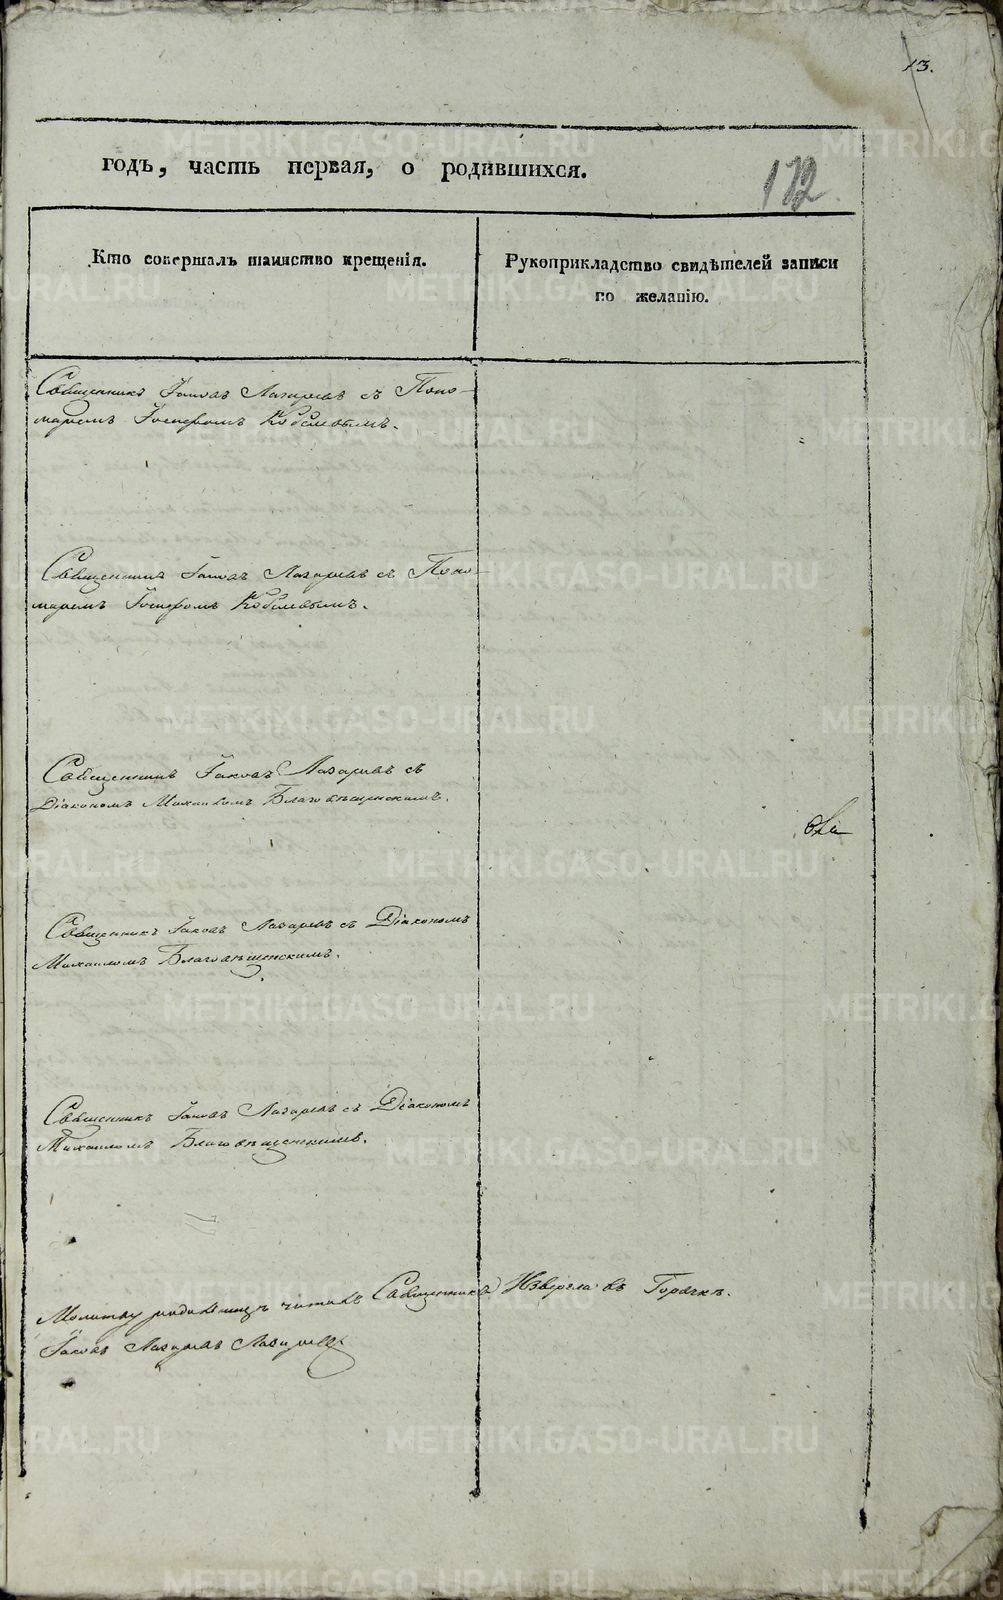 13.
годъ, часть первая, о родившихся.
172
Кто совершалъ таинство крещенія.
Рукоприкладство свидѣтелей записи
по желанію.
Священникъ Іаковъ Лазаревъ съ Поно-
маремъ Іосифомъ Кобелевымъ.
Священникъ Іаковъ Лазаревъ съ Поно-
маремъ Іосифомъ Кобелевымъ.
Священникъ Іаковъ Лазаревъ съ
Діакономъ Михаиломъ Благовѣщенскимъ.
Священникъ Іаковъ Лазаревъ съ Діакономъ
Михаиломъ Благовѣщенскимъ.
Священникъ Іаковъ Лазаревъ съ Діакономъ
Михаиломъ Благовѣщенскимъ.
Молитву читалъ Священникъ
Іаковъ Лазаревъ
METRIKI.GASO-URAL.RU